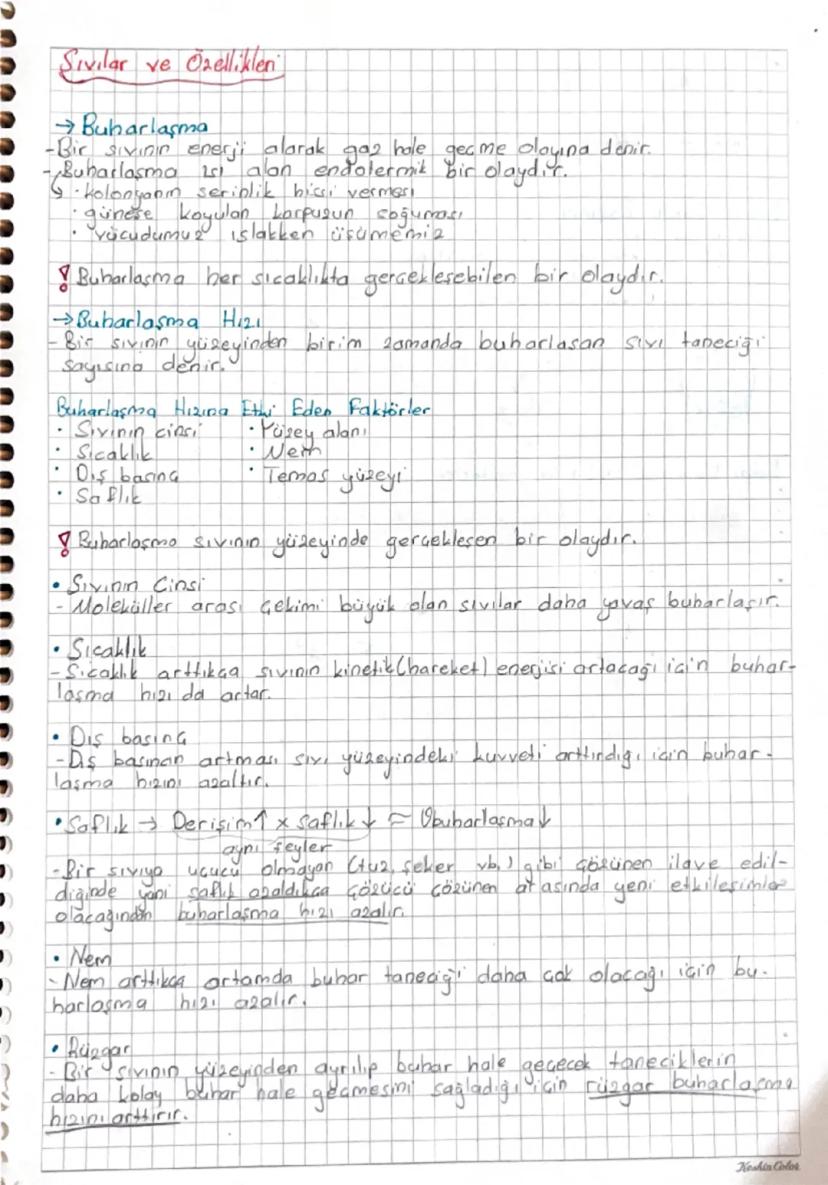 Sıvılar ve Özellikleri
→ Buharlaşma
- Bir sıvının enerji alarak gaz hale geçme olayına denir.
- Buharlaşma ısı alan endotermik bir olaydır.
· Kolonyanın serinlik hissi vermesi
· güneşe koyulan karpuzun soğuması
· vücudumuz ıslakken üşümemiz
! Buharlaşma her sıcaklıkta gerçekleşebilen bir olaydır.
→ Buharlaşma Hızı
- Bir sıvının yüzeyinden birim zamanda buharlaşan sıvı taneciği
sayısına denir.
Buharlaşma Hızına Etki Eden Faktörler
· Sıvının cinsi · Yüzey alanı
· Sıcaklık · Nem
· Dış basınç · Temas yüzeyi
· Saflık
! Buharlaşma sıvının yüzeyinde gerçekleşen bir olaydır.
• Sıvının Cinsi
- Moleküller arası çekimi büyük olan sıvılar daha yavaş buharlaşır.
• Sıcaklık
- Sıcaklık arttıkça sıvının kinetik (hareket) enerjisi artacağı için buhar-
laşma hızı da artar.
• Dış basınç
- Dış basıncın artması sıvı yüzeyindeki kuvveti arttırdığı için buhar-
laşma hızını azaltır.
• Saflık → Derişim↑ x saflık↓ = ϑbuharlaşma↓
aynı şeyler
- Bir sıvıya uçucu olmayan (tuz, şeker vb.) gibi çözünen ilave edil-
diğinde yani saflık azaldıkça çözücü çözünen arasında yeni etkileşimler
olacağından buharlaşma hızı azalır.
• Nem
- Nem arttıkça ortamda buhar taneciği daha çok olacağı için bu-
harlaşma hızı azalır.
• Rüzgar
- Bir sıvının yüzeyinden ayrılıp buhar hale geçecek taneciklerin
daha kolay buhar hale geçmesini sağladığı için rüzgar buharlaşma
hızını arttırır.
Keskin Color